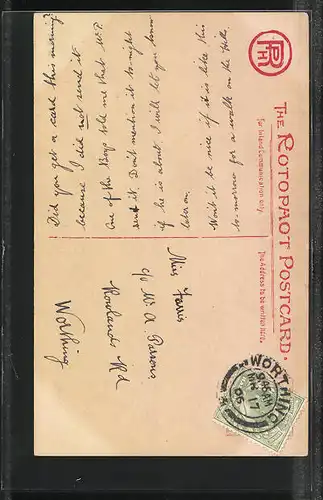 THE ROTOPHOT POSTCARD.
RPH
For Inland Communication only.
The Address to be written here.
Did you get a card this morning?
because I did not send it.
One of the Boys told me that W.P.
sent it. Don't mention it to-night
if he is about I will let you know
later on.
Wont it be nice if it is like this
to-morrow for a walk on the Hills.
Miss Farris
c/o W. A. Parsons
Rowlands Rd
Worthing
WORTHING
17
06